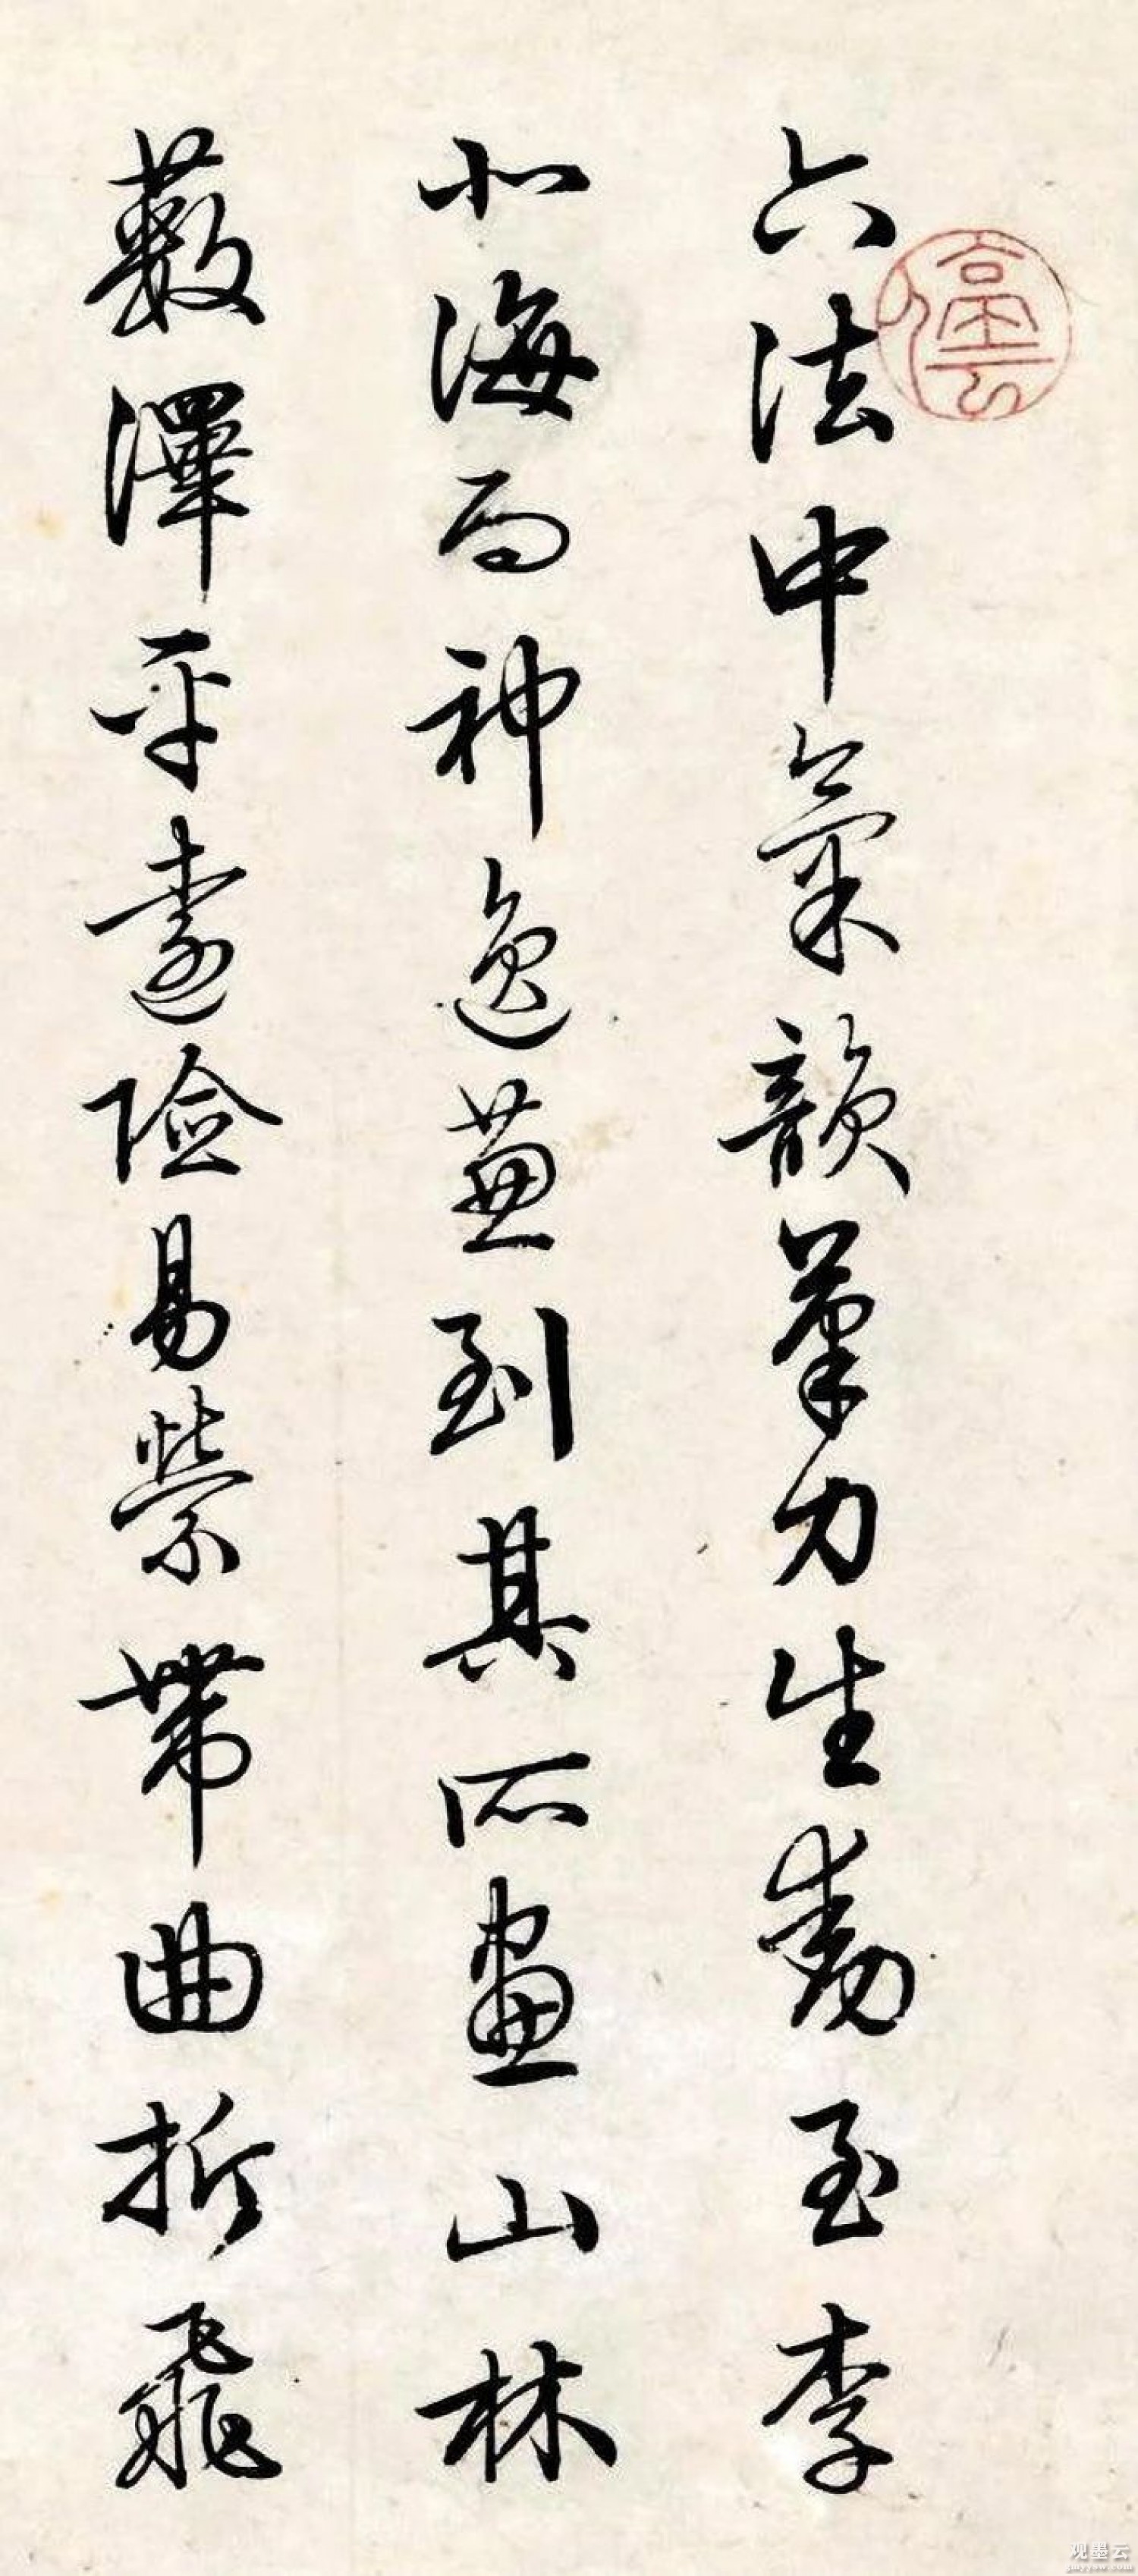 六法中氣韻筆力生動至李
北海而神逸兼到其所畫山林
藪澤平遠險易縈帶曲折飛
停雲
观墨云